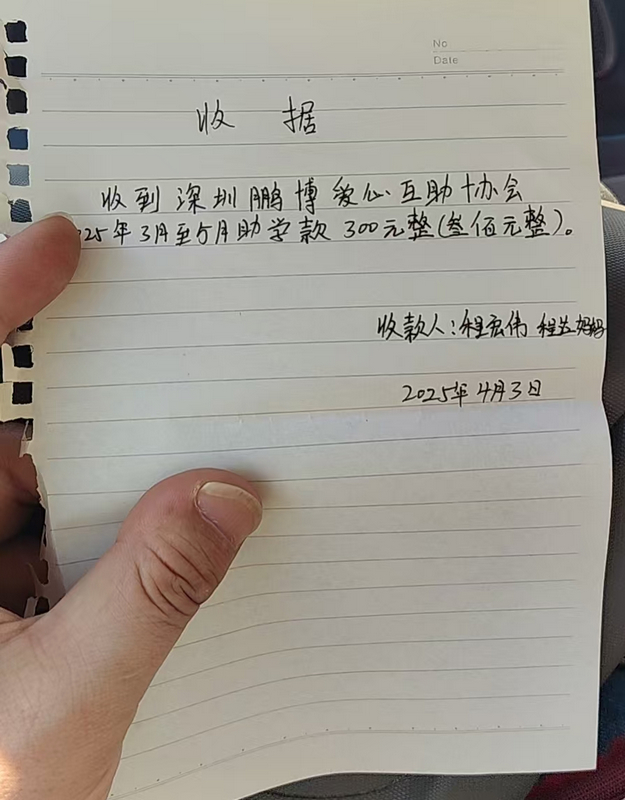 No
Date
收据
收到深圳鹏博爱心互助协会
025年3月至5月助学款300元整(叁佰元整)。
收款人:程宏伟 程 妈妈
2025年4月3日